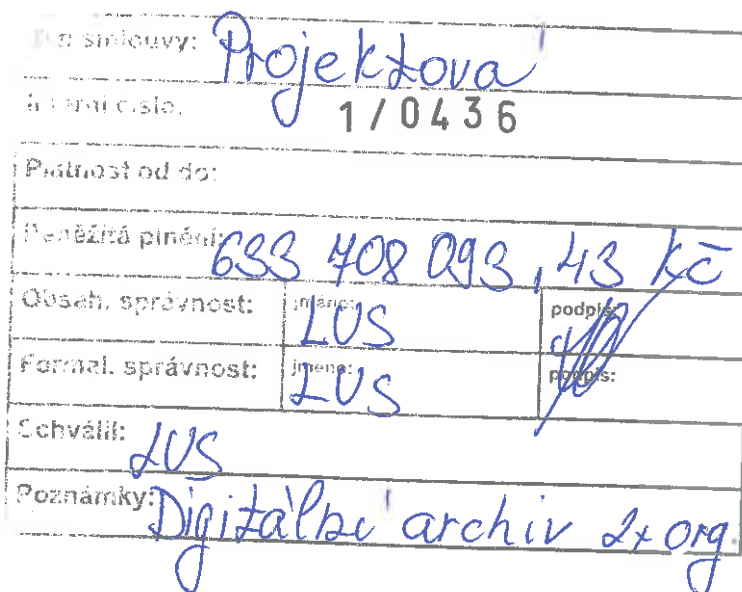 Typ smlouvy: Projektova
Interní číslo: 1/0436
Platnost od do:
Peněžitá plnění: 633 708 093,43 Kč
Obsah. správnost: jméno: LUS podpis:
Formal. správnost: jméno: LUS podpis:
Schválil: LUS
Poznámky: Digitální archiv 2x org.